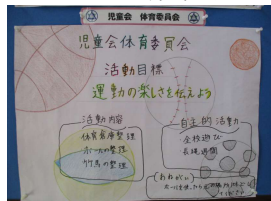 児童会 体育委員会
児童会体育委員会
活動目標
運動の楽しさを伝えよう
活動内容
体育倉庫整理
ボールの整理
竹馬の整理
自主的活動
全校遊び
長縄週間